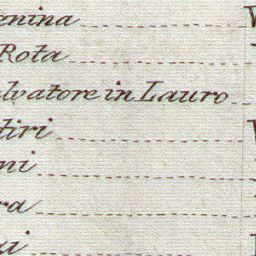 enina
Rota
lvatore in Lauro
tiri
ni
ra